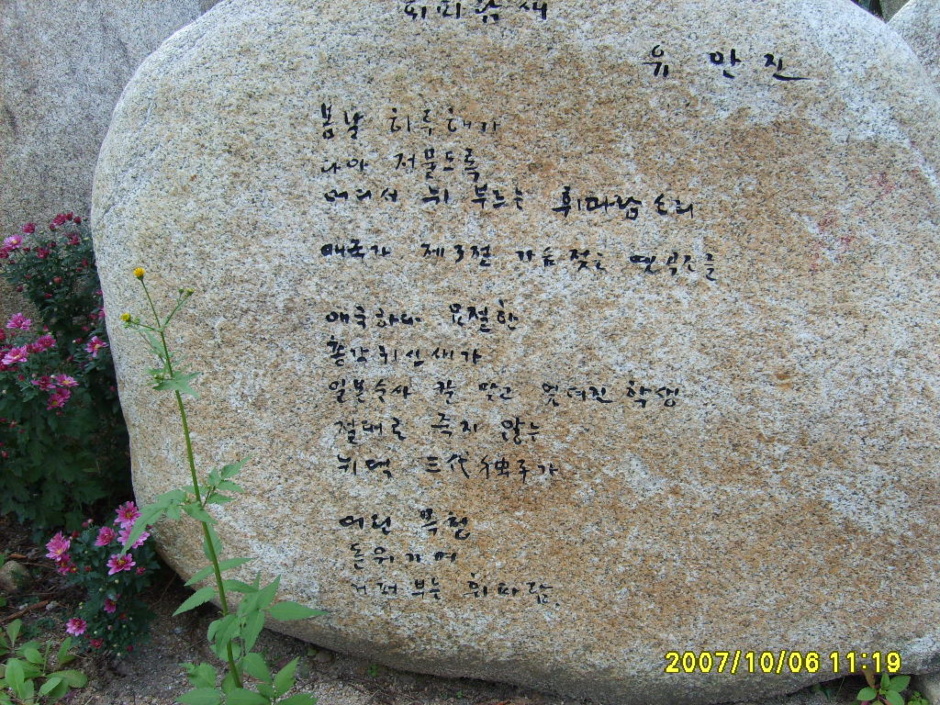 휘파람새
유안진
봄날 하루해가
다아 저물도록
어디서 뉘 부르는 휘파람소리
애국가 제3절 가슴 젖는 옛 곡조를
애국하다 요절한
총각귀신새가
일본순사 칼 맞고 엎어진 학생
절대로 죽지 않는
뉘댁 三代独子가
여린 목청
돋워가며
거퍼 부는 휘파람.
2007/10/06 11:19